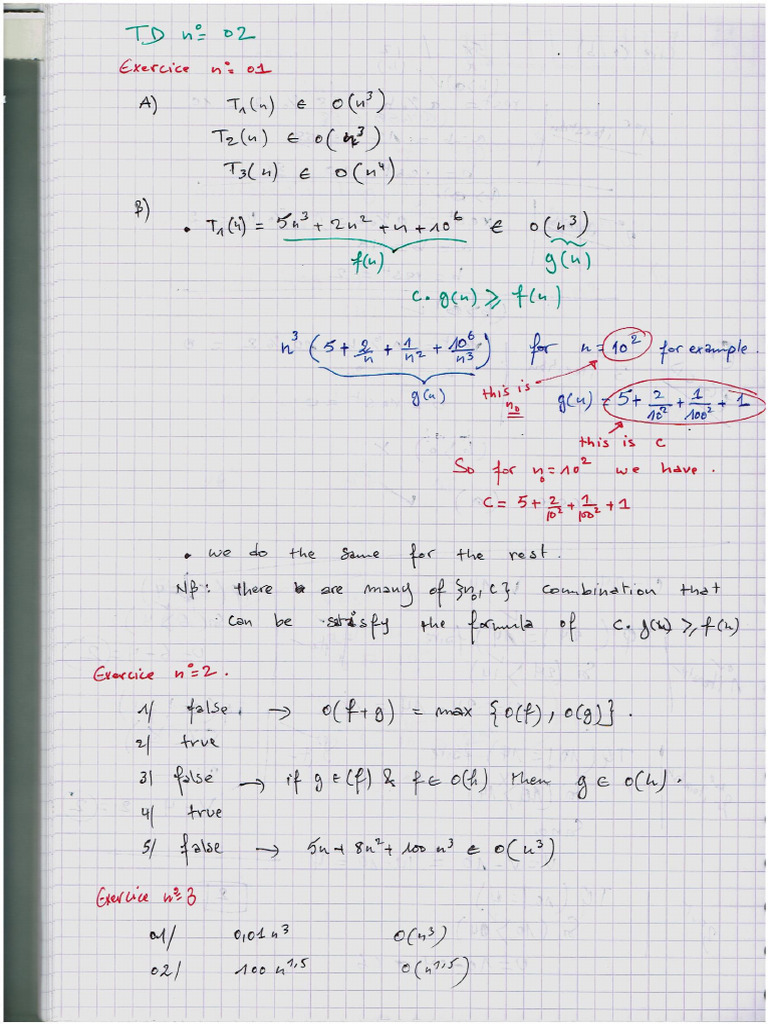 TD n°= 02
Exercice n°= 01
A) T₁(n) ∈ O(n³)
T₂(n) ∈ O(n³)
T₃(n) ∈ O(n⁴)
B)
• T₁(n) = 5n³ + 2n² + n + 10⁶ ∈ O(n³)
f(n) g(n)
c. g(n) ⩾ f(n)
n³ (5 + 2/n + 1/n² + 10⁶/n³) for n = 10² for example.
g(n) this is n₀ g(n) = 5 + 2/10² + 1/100² + 1
this is c
So for n₀ = 10² we have.
C = 5 + 2/10² + 1/100² + 1
• we do the same for the rest.
NB: there are many of {n₀, c} combination that
can be satisfy the formula of c. g(n) ⩾ f(n)
Exercice n°=2.
1/ false. → O(f+g) = max {O(f), O(g)}.
2/ true
3/ false → if g ∈ (f) & f ∈ O(h) then g ∈ O(h).
4/ true
5/ false → 5n + 8n² + 100 n³ ∈ O(n³)
Exercice n°=3
01/ 0,01 n³ O(n³)
02/ 100 n^1,5 O(n^1,5)